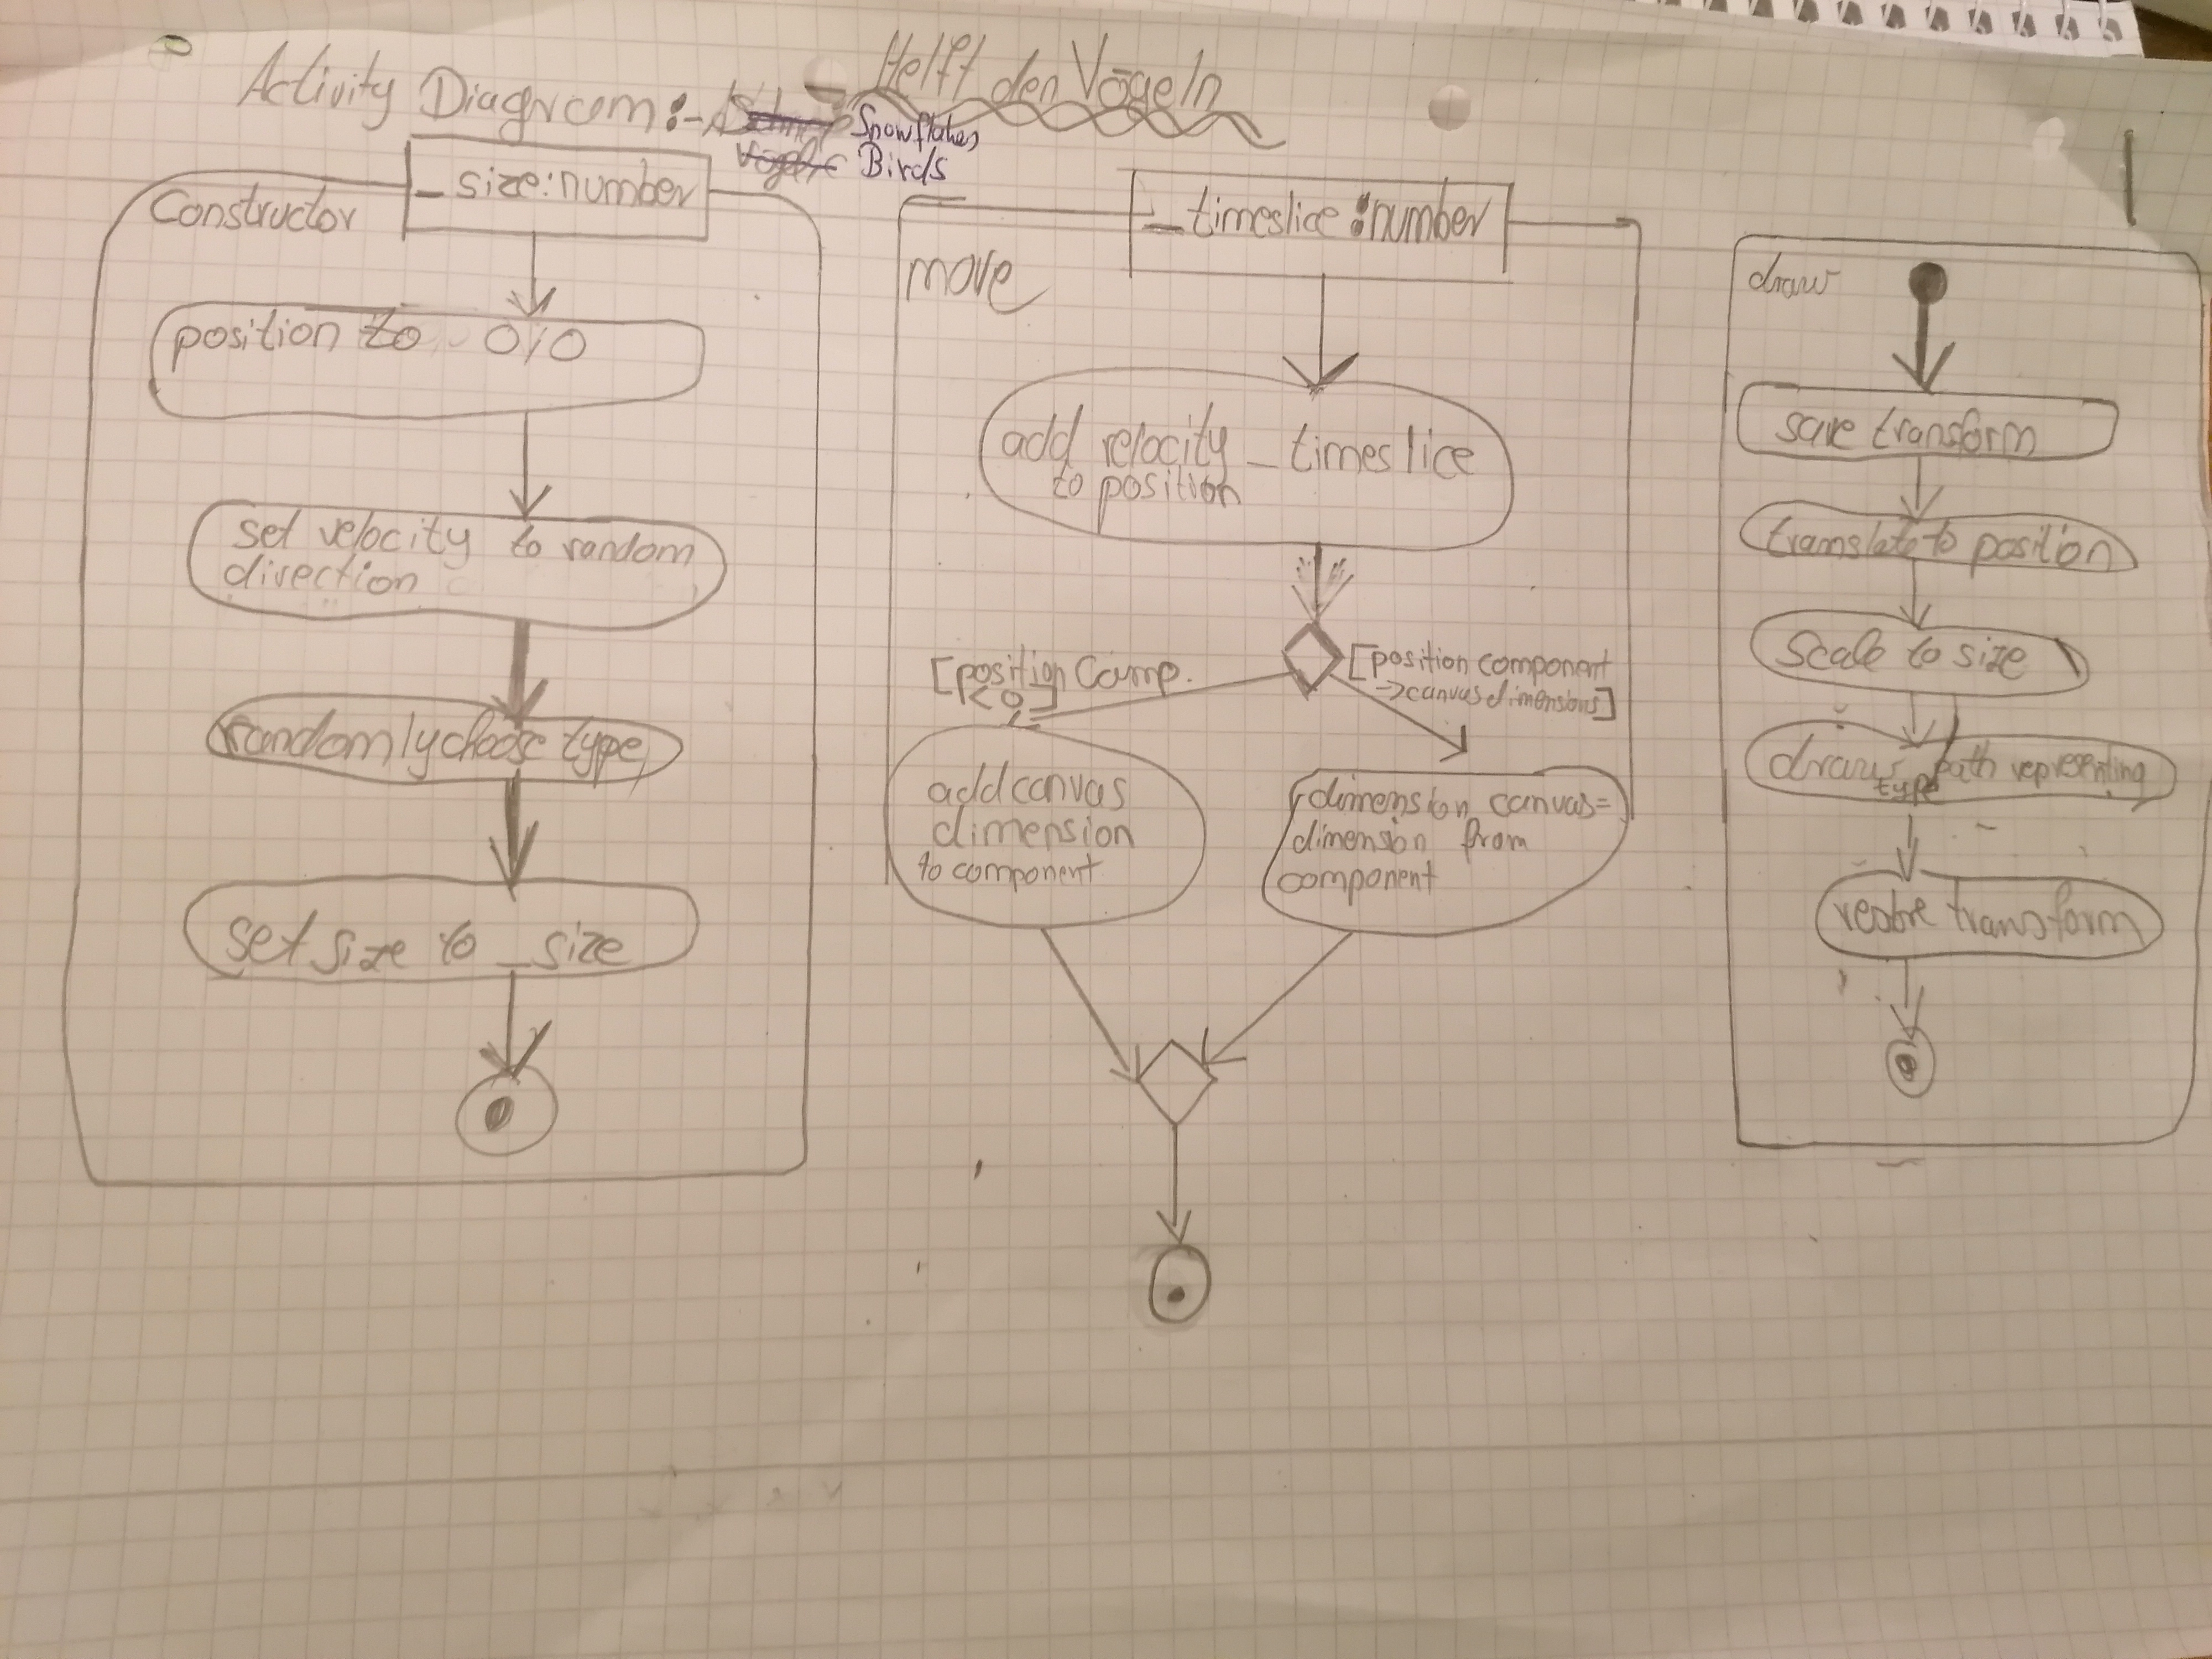 Helft den Vögeln
Activity Diagram:-
Snowflakes
Birds
Constructor
_size:number
position to 0/0
set velocity to random
direction
randomly choose type
set size to _size
_timeslice:number
move
add velocity _timeslice
to position
[position Comp.
<0]
[position component
->canvas dimensions]
add canvas
dimension
to component
dimension canvas=
dimension from
component
draw
save transform
translate to position
Scale to size
draw path representing
type
restore transform